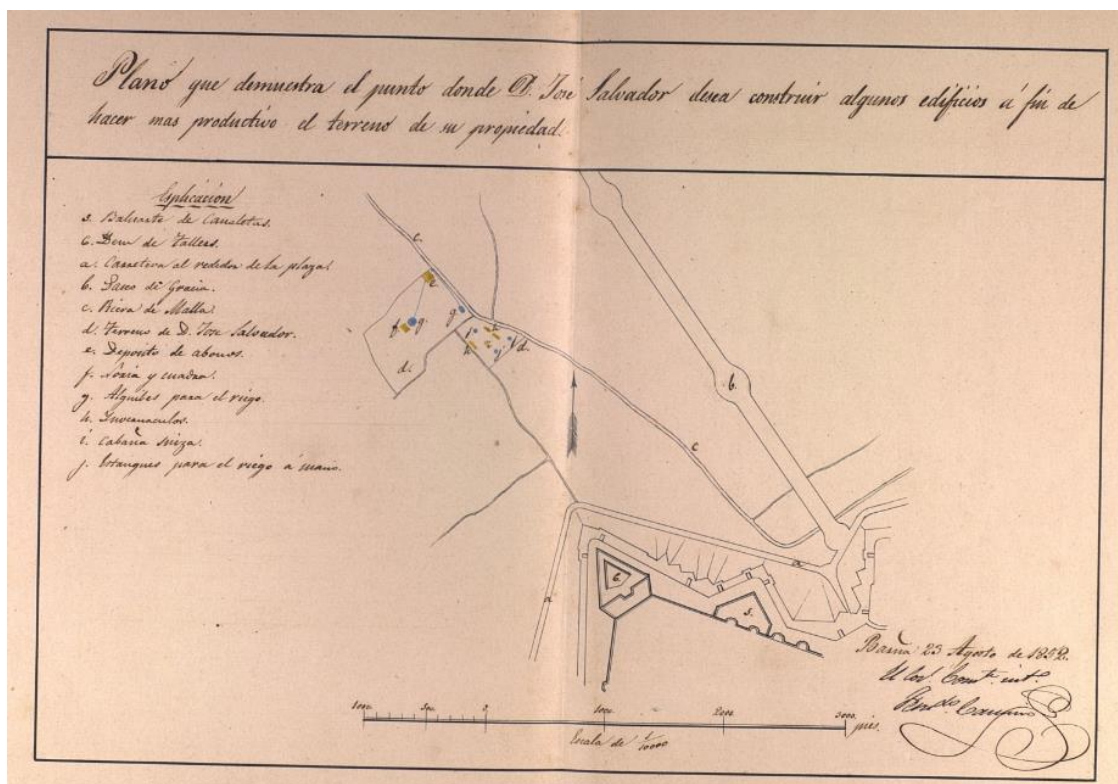 Plano que demuestra el punto donde D. José Salvador desea construir algunos edificios á fin de
hacer mas productivo el terreno de su propiedad.
Esplicacion
5. Baluarte de Canaletas.
6. Idem de Tallers.
a. Carretera al rededor de la plaza.
b. Paseo de Gracia.
c. Riera de Malla.
d. Terreno de D. Jose Salvador.
e. Deposito de abonos.
f. Noria y cuadra.
g. Algibes para el riego.
h. Invernaculos.
i. Cabaña suiza.
j. Estanques para el riego á mano.
c.
e
f
g.
g
h
i
j
d.
d.
b.
c
a
a
6.
5.
Barña 23 Agosto de 1852.
El Cor.
1000.
500.
0.
1000.
2000.
3000. piés.
Escala de 1/10000